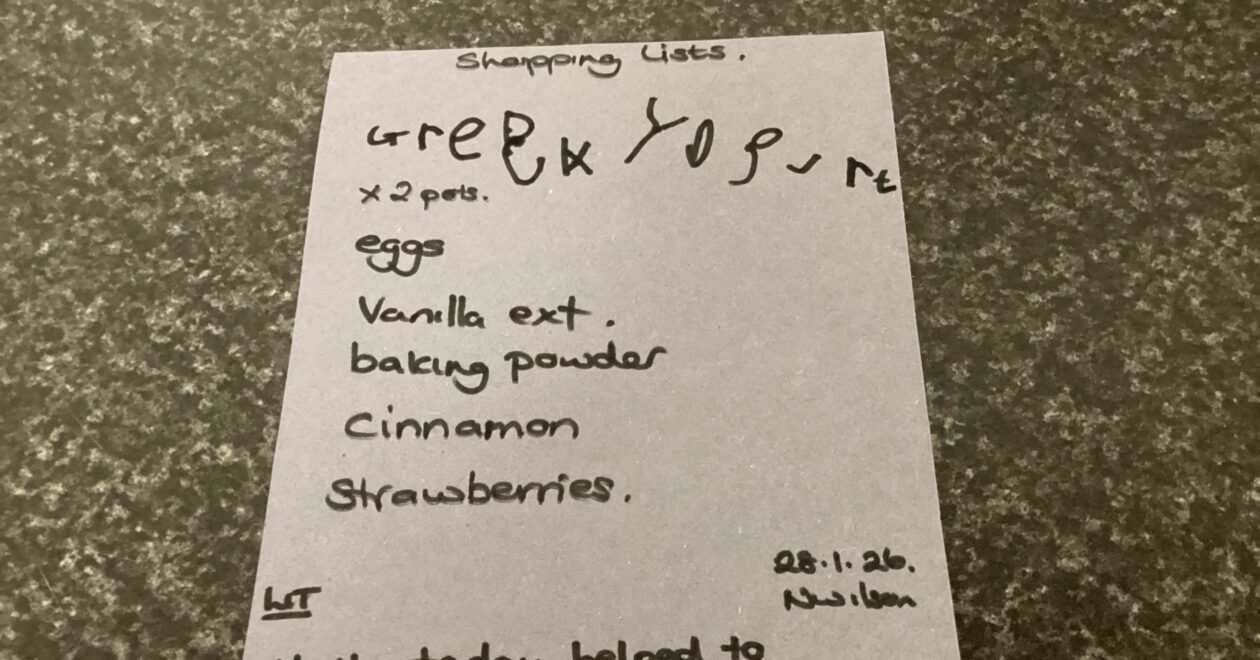 Shopping Lists.
Greek Yogurt
x 2 pots.
eggs
Vanilla ext.
baking powder
Cinnamon
Strawberries.
28.1.26.
NWilson
WT
today helped to